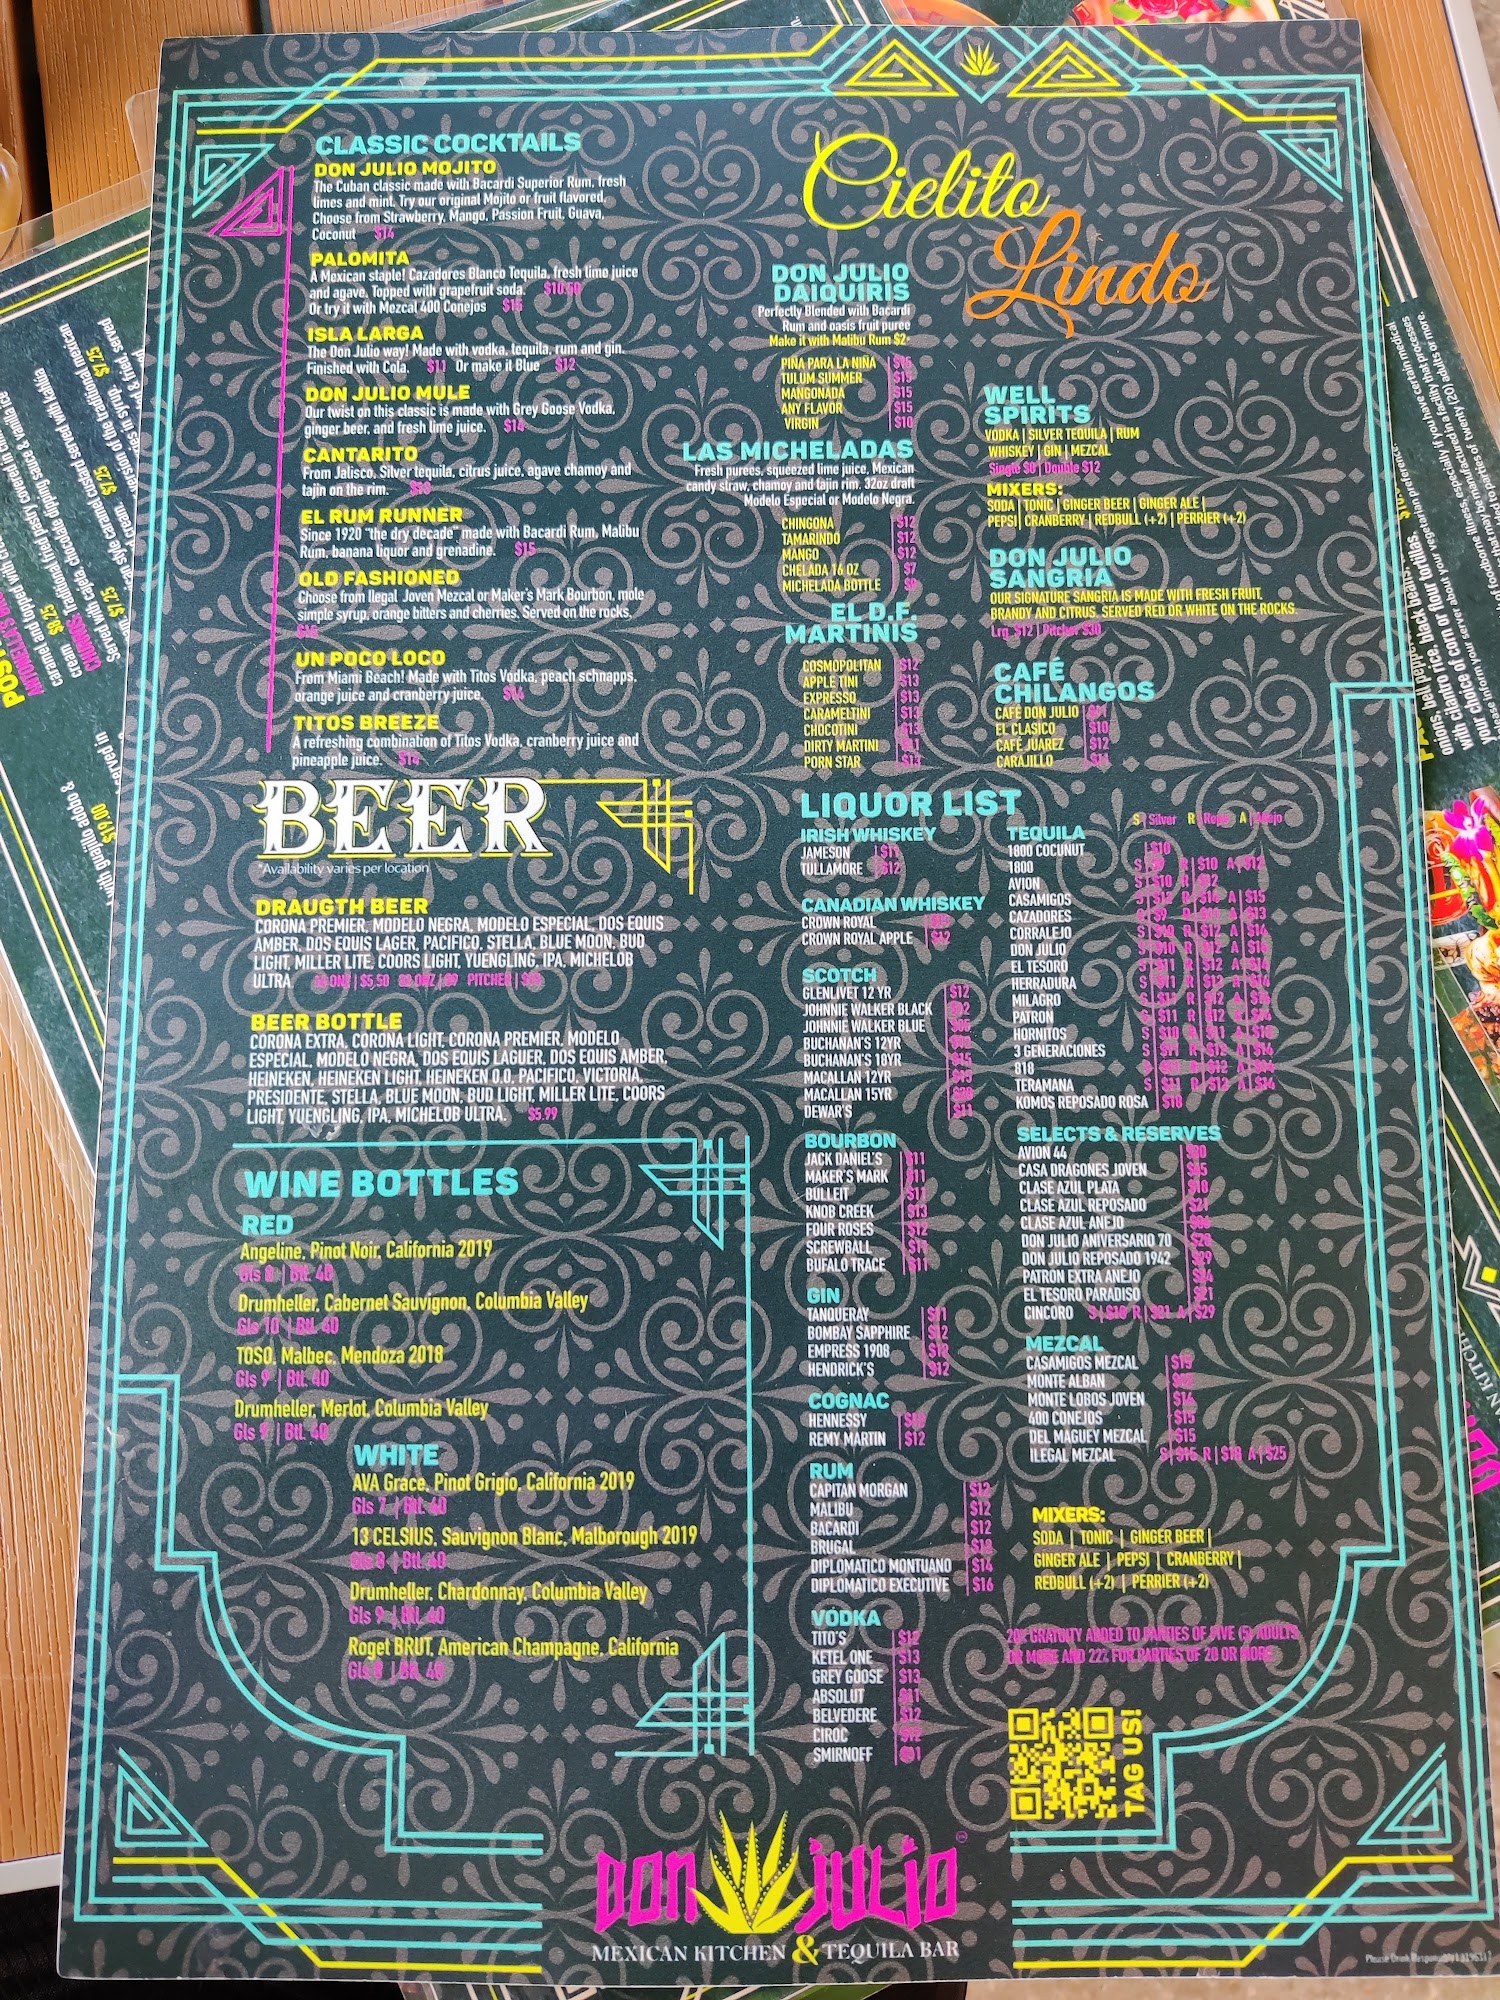 CLASSIC COCKTAILS
DON JULIO MOJITO
The Cuban classic made with Bacardi Superior Rum, fresh
limes and mint. Try our original Mojito or fruit flavored.
Choose from Strawberry, Mango, Passion Fruit, Guava,
Coconut $14
PALOMITA
A Mexican staple! Cazadores Blanco Tequila, fresh lime juice
and agave. Topped with grapefruit soda. $10.50
Or try it with Mezcal 400 Conejos $15
ISLA LARGA
The Don Julio way! Made with vodka, tequila, rum and gin.
Finished with Cola. $11 Or make it Blue $12
DON JULIO MULE
Our twist on this classic is made with Grey Goose Vodka,
ginger beer, and fresh lime juice. $14
CANTARITO
From Jalisco, Silver tequila, citrus juice, agave chamoy and
tajin on the rim. $13
EL RUM RUNNER
Since 1920 "the dry decade" made with Bacardi Rum, Malibu
Rum, banana liquor and grenadine. $15
OLD FASHIONED
Choose from Ilegal Joven Mezcal or Maker's Mark Bourbon, mole
simple syrup, orange bitters and cherries. Served on the rocks.
UN POCO LOCO
From Miami Beach! Made with Titos Vodka, peach schnapps,
orange juice and cranberry juice. $14
TITOS BREEZE
A refreshing combination of Titos Vodka, cranberry juice and
pineapple juice. $14
BEER
*Availability varies per location
DRAUGTH BEER
CORONA PREMIER, MODELO NEGRA, MODELO ESPECIAL, DOS EQUIS
AMBER, DOS EQUIS LAGER, PACIFICO, STELLA, BLUE MOON, BUD
LIGHT, MILLER LITE, COORS LIGHT, YUENGLING, IPA, MICHELOB
ULTRA $5.50 PITCHER
BEER BOTTLE
CORONA EXTRA, CORONA LIGHT, CORONA PREMIER, MODELO
ESPECIAL, MODELO NEGRA, DOS EQUIS LAGUER, DOS EQUIS AMBER,
HEINEKEN, HEINEKEN LIGHT, HEINEKEN 0.0, PACIFICO, VICTORIA,
PRESIDENTE, STELLA, BLUE MOON, BUD LIGHT, MILLER LITE, COORS
LIGHT, YUENGLING, IPA, MICHELOB ULTRA. $5.99
WINE BOTTLES
RED
Angeline, Pinot Noir, California 2019
Gls 8 | Btl. 40
Drumheller, Cabernet Sauvignon, Columbia Valley
Gls 10 | Btl. 40
TOSO, Malbec, Mendoza 2018
Gls 9 | Btl. 40
Drumheller, Merlot, Columbia Valley
Gls 9 | Btl. 40
WHITE
AVA Grace, Pinot Grigio, California 2019
Gls 7 | Btl. 40
13 CELSIUS, Sauvignon Blanc, Malborough 2019
Gls 8 | Btl. 40
Drumheller, Chardonnay, Columbia Valley
Gls 9 | Btl. 40
Roget BRUT, American Champagne, California
Gls 8 | Btl. 40
Cielito
Lindo
DON JULIO
DAIQUIRIS
Perfectly Blended with Bacardi
Rum and oasis fruit puree
Make it with Malibu Rum $2+
PIÑA PARA LA NIÑA | $15
TULUM SUMMER | $15
MANGONADA | $15
ANY FLAVOR | $15
VIRGIN | $10
LAS MICHELADAS
Fresh purees, squeezed lime juice, Mexican
candy straw, chamoy and tajin rim. 32oz draft
Modelo Especial or Modelo Negra.
CHINGONA | $12
TAMARINDO | $12
MANGO | $12
CHELADA 16 OZ | $7
MICHELADA BOTTLE | $9
EL D.F.
MARTINIS
COSMOPOLITAN | $12
APPLE TINI | $13
EXPRESSO | $13
CARAMELTINI | $13
CHOCOTINI | $13
DIRTY MARTINI | $11
PORN STAR | $13
WELL
SPIRITS
VODKA | SILVER TEQUILA | RUM
WHISKEY | GIN | MEZCAL
Single | Double $12
MIXERS:
SODA | TONIC | GINGER BEER | GINGER ALE |
PEPSI | CRANBERRY | REDBULL (+2) | PERRIER (+2)
DON JULIO
SANGRIA
OUR SIGNATURE SANGRIA IS MADE WITH FRESH FRUIT,
BRANDY AND CITRUS. SERVED RED OR WHITE ON THE ROCKS.
Lrg $12 | Pitcher $30
CAFÉ
CHILANGOS
CAFÉ DON JULIO | $11
EL CLASICO | $10
CAFÉ JUAREZ | $12
CARAJILLO | $11
LIQUOR LIST
IRISH WHISKEY
JAMESON | $11
TULLAMORE | $12
CANADIAN WHISKEY
CROWN ROYAL
CROWN ROYAL APPLE | $12
SCOTCH
GLENLIVET 12 YR | $12
JOHNNIE WALKER BLACK
JOHNNIE WALKER BLUE
BUCHANAN'S 12YR
BUCHANAN'S 18YR | $15
MACALLAN 12YR
MACALLAN 15YR
DEWAR'S | $11
BOURBON
JACK DANIEL'S | $11
MAKER'S MARK | $11
BULLEIT | $11
KNOB CREEK | $13
FOUR ROSES | $12
SCREWBALL | $11
BUFALO TRACE | $11
GIN
TANQUERAY | $11
BOMBAY SAPPHIRE | $12
EMPRESS 1908
HENDRICK'S | $12
COGNAC
HENNESSY
REMY MARTIN | $12
RUM
CAPITAN MORGAN | $12
MALIBU | $12
BACARDI | $12
BRUGAL
DIPLOMATICO MONTUANO | $14
DIPLOMATICO EXECUTIVE | $16
VODKA
TITO'S | $12
KETEL ONE | $13
GREY GOOSE | $13
ABSOLUT | $11
BELVEDERE | $12
CIROC | $12
SMIRNOFF
TEQUILA S | Silver R | Repo A | Añejo
1800 COCUNUT | $10
1800 S | $9 R | $10 A | $12
AVION S | $10 R | $12
CASAMIGOS S | $12 R | $14 A | $15
CAZADORES S | $9 R | $11 A | $13
CORRALEJO S | $10 R | $12 A | $14
DON JULIO S | $10 R | $12 A
EL TESORO S | $11 R | $12 A | $14
HERRADURA S | $11 R | $12 $14
MILAGRO S | $11 R | $12 A
PATRON S | $11 R | $12 A
HORNITOS S | $10 R | $11 A
3 GENERACIONES S | $11 R | $12 A | $14
818 $12 $14
TERAMANA S | $11 R | $12 A | $14
KOMOS REPOSADO ROSA | $18
SELECTS & RESERVES
AVION 44
CASA DRAGONES JOVEN
CLASE AZUL PLATA
CLASE AZUL REPOSADO | $21
CLASE AZUL ANEJO
DON JULIO ANIVERSARIO 70
DON JULIO REPOSADO 1942 | $29
PATRON EXTRA ANEJO | $24
EL TESORO PARADISO | $21
CINCORO A | $29
MEZCAL
CASAMIGOS MEZCAL | $15
MONTE ALBAN
MONTE LOBOS JOVEN | $14
400 CONEJOS | $15
DEL MAGUEY MEZCAL | $15
ILEGAL MEZCAL S | $15 R | $18 A | $25
MIXERS:
SODA | TONIC | GINGER BEER |
GINGER ALE | PEPSI | CRANBERRY |
REDBULL (+2) | PERRIER (+2)
20% GRATUITY ADDED TO PARTIES OF FIVE (5) ADULTS
OR MORE AND 22% FOR PARTIES OF 20 OR MORE
TAG US!
DON JULIO
MEXICAN KITCHEN & TEQUILA BAR